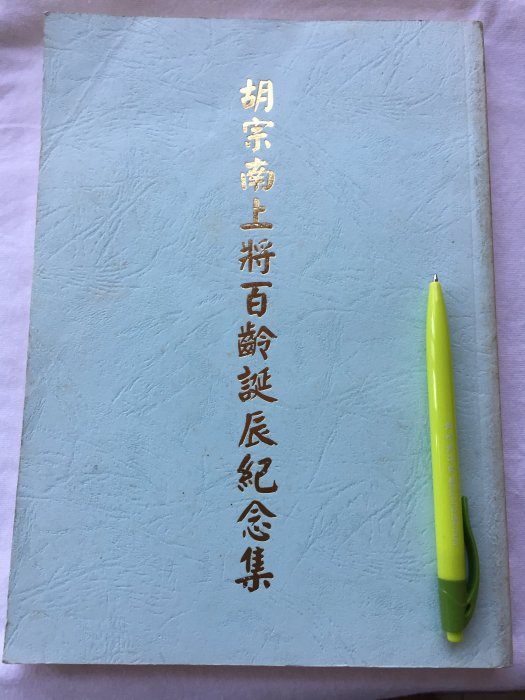 胡宗南上將百齡誕辰紀念集